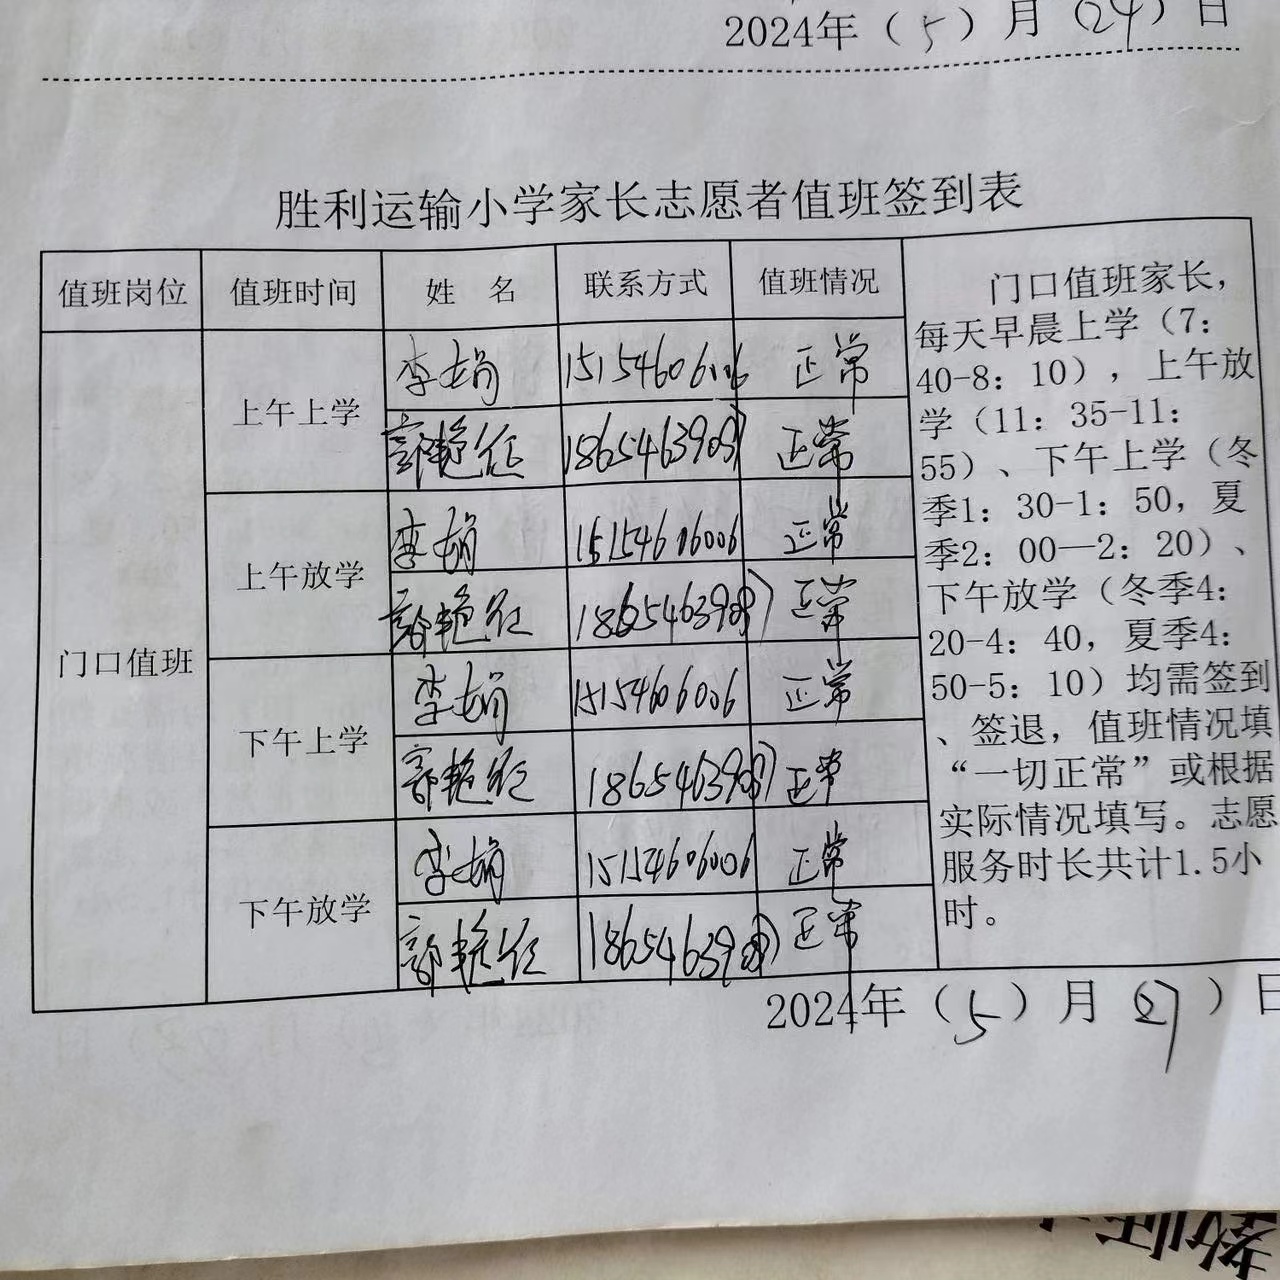 2024年（5）月（24）日
胜利运输小学家长志愿者值班签到表
值班岗位 值班时间 姓 名 联系方式 值班情况
门口值班
上午上学 李娟 15154606006 正常
郭艳 正常
上午放学 李娟 15154606006 正常
郭艳 正常
下午上学 李娟 15154606006 正常
郭艳 正常
下午放学 李娟 15154606006 正常
郭艳 正常
门口值班家长，
每天早晨上学（7：
40-8：10），上午放
学（11：35-11：
55）、下午上学（冬
季1：30-1：50，夏
季2：00—2：20）、
下午放学（冬季4：
20-4：40，夏季4：
50-5：10）均需签到
、签退，值班情况填
“一切正常”或根据
实际情况填写。志愿
服务时长共计1.5小
时。
2024年（5）月（27）日
教师